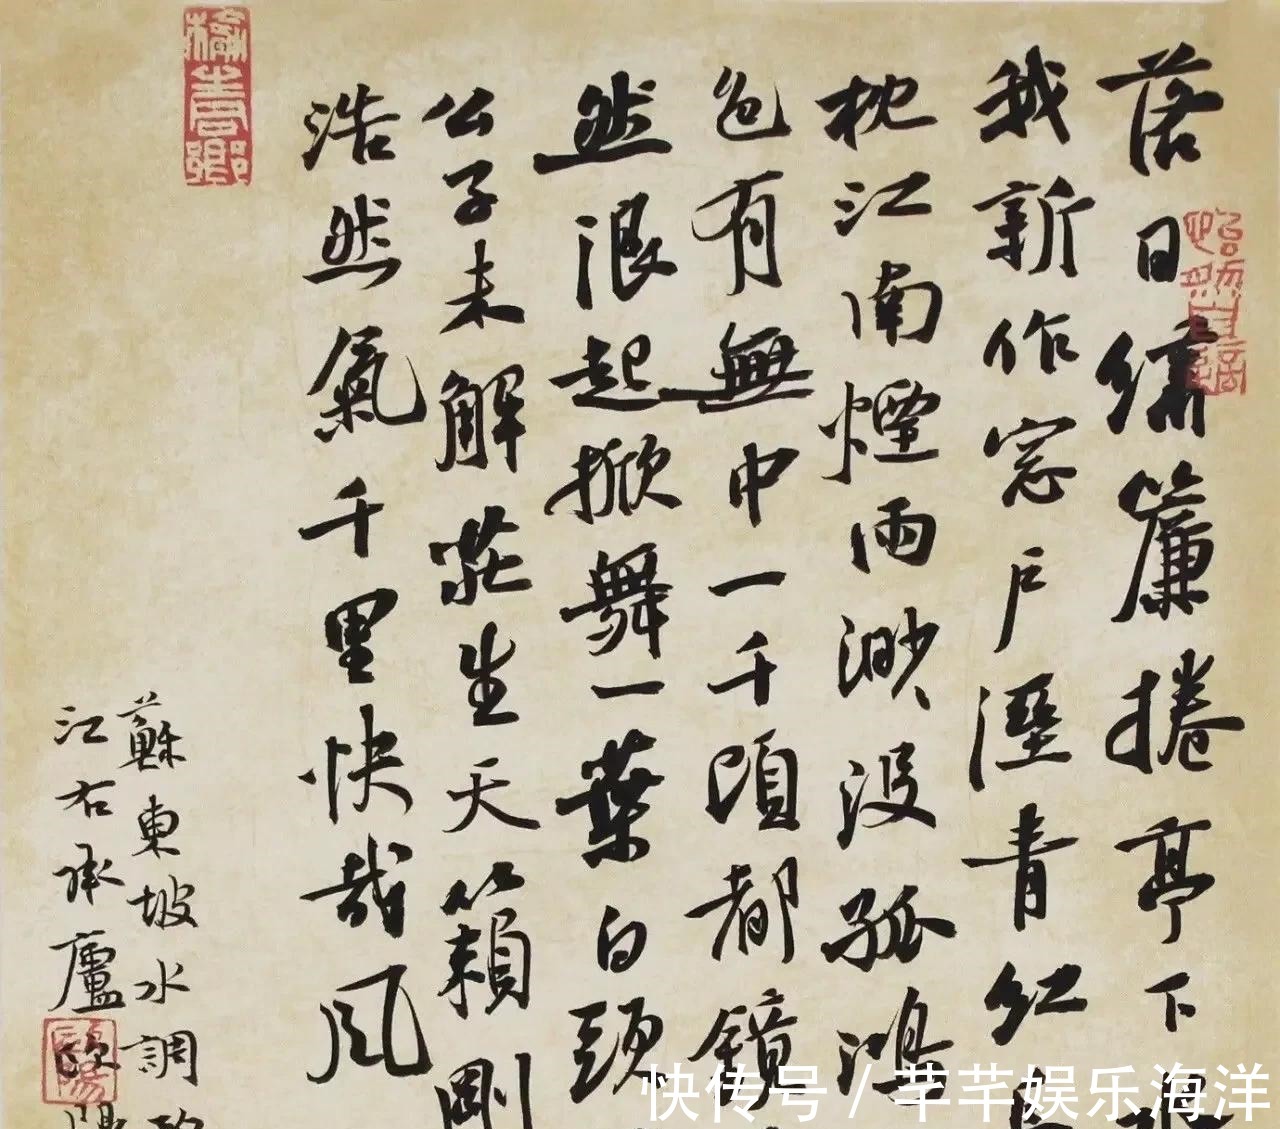 落日繡簾捲亭下
我新作窓戶溼青紅
枕江南煙雨渺渺沒孤鴻
色有無中一千頃都鏡
然浪起掀舞一葉白頭
公子未解莊生天籟剛
浩然氣千里快哉風
蘇東坡水調歌
江右承廬歐陽
快传号／芊芊娱乐海洋